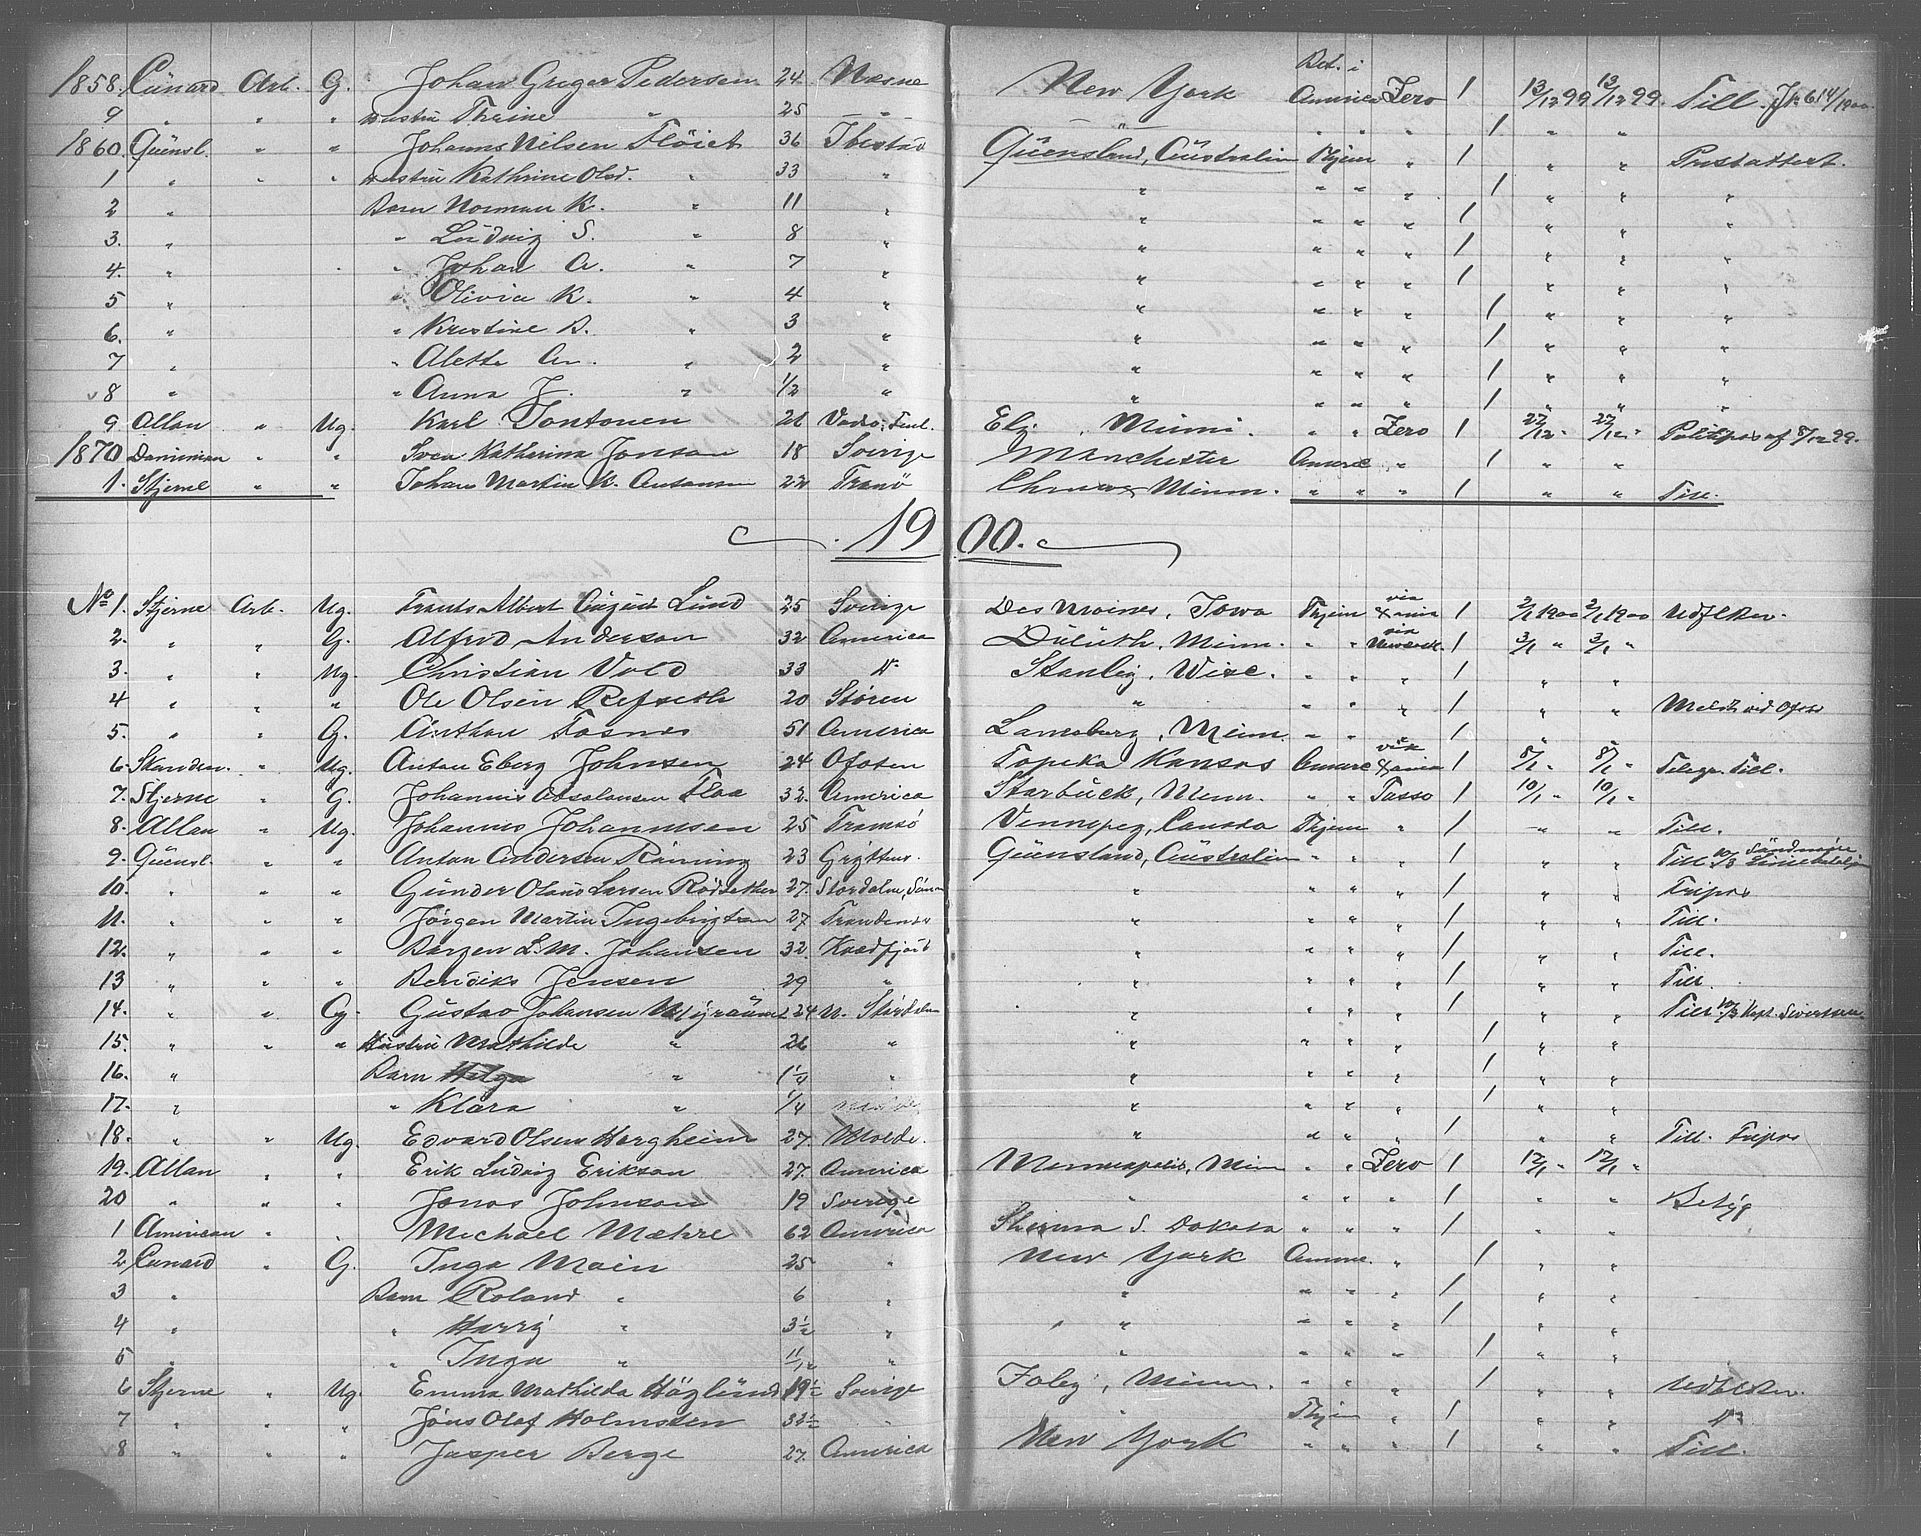 1858. Cunard Arb. G. Johan Greger Pedersen 24 Næsne New York Bet. i America Zero 1 13/12 99 13/12 99. Till. J№ 614/1900
9 " " " Hustru Thrine " 25 " " " " " 1 " "
1860. Queensl. " " Johannes Nilsen Flöiet 36 Ibestad Queensland, Australien Thjem " 1 " " Prestattest.
1 " " " Hustru Kathrine Olsd. " 33 " " " " " 1 " " "
2 " Barn Norman K. " 11 " " " " " 1 " " "
3. " " Ludvig S. " 8 " " " " " 1 " " "
4. " " Johan A. " 7 " " " " " 1 " " "
5 " " Olivia K. " 4 " " " " " 1 " " "
6. " " Kristine B. " 3 " " " " " 1 " " "
7 " " Alette An. " 2 " " " " " 1 " " "
8 " " Anna J. " 1/2 " " " " " 1 " " "
9 Allan " Ug. Karl Tontonen 21 Vadsö, Finl. Ely, Minn. " " Zero 1 22/12 " 22/12 " Politipas af 8/12 99.
1870 Dominion " " Svea Katherina Jonson 18 Sverige Manchester Americ " 1 " "
1. Stjerne " " Johan Martin K. Antonsen 22 Tranö Minn. " " " 1 " " Till.
1900.
№ 1. Stjerne Arb. Ug. Frants Albert August Lund 25 Sverige Des Moines, Iowa Thjem via Xania 1 2/1 1900 2/1 1900 Udflkon.
2. " " G. Alfred Anderson 32 America Duluth, Minn. " " via 1 3/1 " 3/1 "
3. " " Ug. Christian Vold 33 " Stanley, Wisc. " " " 1 " "
4 " " " Ole Olsen Refseth 20 Støren " " " " 1 " " Meldt ved
5. " " G. Anthon Fosnes 51 America Lanesburg, Minn. " " " 1 " "
6. Skandin. " Ug. Anton Eberg Johnsen 24 Ofoten Topeka Kansas Americ via Xania 1 8/1 " 8/1 " Telegr. Till.
7. Stjerne " G. Johannis Absalonsen Floa 32. America Starbuck, Minn. " " Tasso 1 10/1 " 10/1 "
8. Allan " Ug. Johannes Johannesen 25 Tromsö Vinnepeg, Canada Thjem " 1 " " Till.
9. Queensl. " " Anton Andersen Röning 23 Gryttens. Queensland, Australien " " " 1 " " Till Söndmøre
10. " " " Gunder Olaus Larsen Rödsether 27. Stordalen, Sönm " " " " 1 " " Fripas
11. " " " Jörgen Martin Ingebrigtsen 27 Trondenes " " " " 1 " " Till.
12. " " " Bergen L. M. Johansen 32 Kvedfjord " " " " 1 " " Till.
13 " " " Bendiks Jensen 29 " " " " " 1 " " Till.
14. " " G. Gustav Johansen 24 N. Stördalen " " " " 1 " " Till Kapt. Sivertsen
15. " " " Hustru Mathilde " 26 " " " " " 1 " "
16. " Barn Helga " 1 1/4 " " " " " 1 " "
17. " " Klara " 1/4 " " " " 1 " "
18. " " Ug. Edvard Olsen Horgheim 27. Molde. " " " " 1 " " Till. Fripas
19. Allan " " Erik Ludvig Erikson 27. America Minneapolis, Min " " Zero 1 12/1 " 12/1 "
20 " " " Jonas Johnson 19 Sverige " " " " 1 " " Betyg
1 American " " Michael Mæhre 62 America S. Dakota " " " 1 " "
2 Cunard " G. Inga Moen 25 " New York Americ. " 1 " "
3 " Barn Roland " 6 " " " " " 1 " "
4 " " Harry " 3 1/2 " " " " " 1 " "
5 " " Inga " 11/12 " " " " " 1 " "
6 Stjerne " Ug. Emma Mathilda Höglund 19 1/2 Sverige Foley, Minn. " " " 1 " " Udflkon.
7 " " " Jöns Olof Holmsten 32 1/2 " " Thjem " 1 " " "
8 " " " Jasper Berge 27. America New York " " " 1 " " Till.